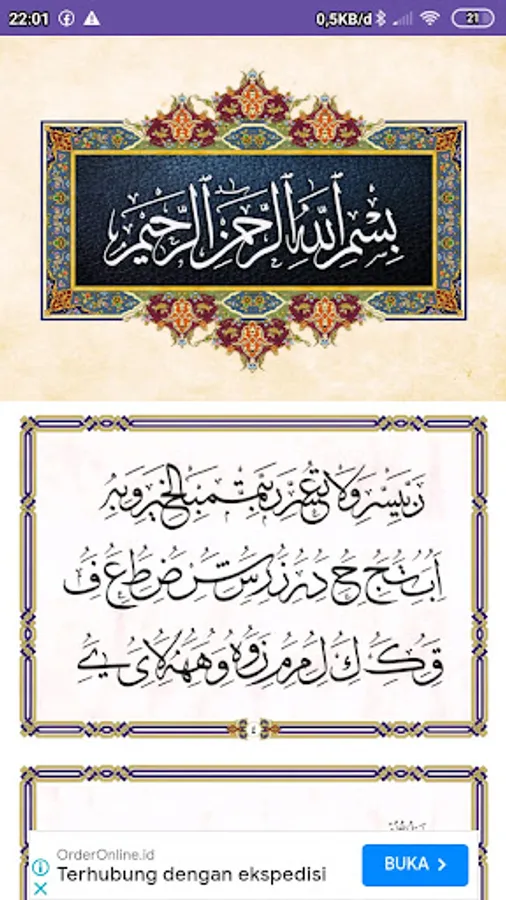 22:01 0,5KB/d 21
بسم الله الرحمن الرحيم
رب يسر ولا تعسر رب تمم بالخير وبه
ا ب ت ج ح د ر ز س ض ط ع ف
ق ك ك ل م م ر ز و ه و ه ه لا ي ے
OrderOnline.id
Terhubung dengan ekspedisi
BUKA